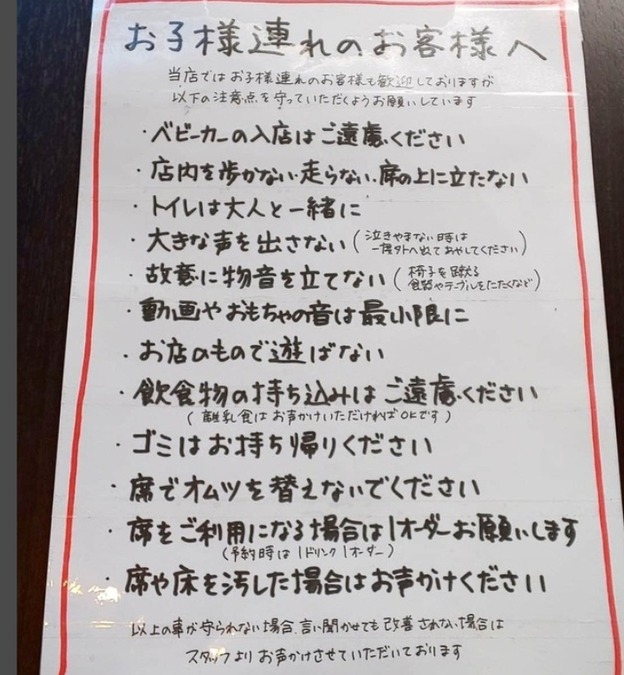 お子様連れのお客様へ
当店ではお子様連れのお客様も歓迎しておりますが
以下の注意点を守っていただくようお願いしています
・ベビーカーの入店はご遠慮ください
・店内を歩かない・走らない、席の上に立たない
・トイレは大人と一緒に
・大きな声を出さない(泣きやまない時は
一度外へ出てあやしてください)
・故意に物音を立てない(椅子を蹴る
食器やテーブルをたたくなど)
・動画やおもちゃの音は最小限に
・お店のもので遊ばない
・飲食物の持ち込みはご遠慮ください
(離乳食はお声かけいただければOKです)
・ゴミはお持ち帰りください
・席でオムツを替えないでください
・席をご利用になる場合は1オーダーお願いします
(予約時は1ドリンク1オーダー)
・席や床を汚した場合はお声かけください
以上の事が守られない場合、言い聞かせても改善されない場合は
スタッフよりお声かけさせていただいております